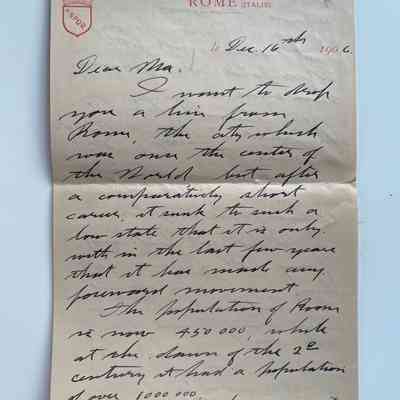 SPQR
ROME (ITALIE)
Dec. 16th 1906.
Dear Ma.
I want to drop
you a line from
Rome, the city which
was once the center of
the World but after
a comparatively short
career, it sunk to such a
low state that it is only
with in the last few years
that it has made any
foreward movement.
The population of Rome
is now 450000, while
at the dawn of the 2d
century it had a population
of over 1000000.